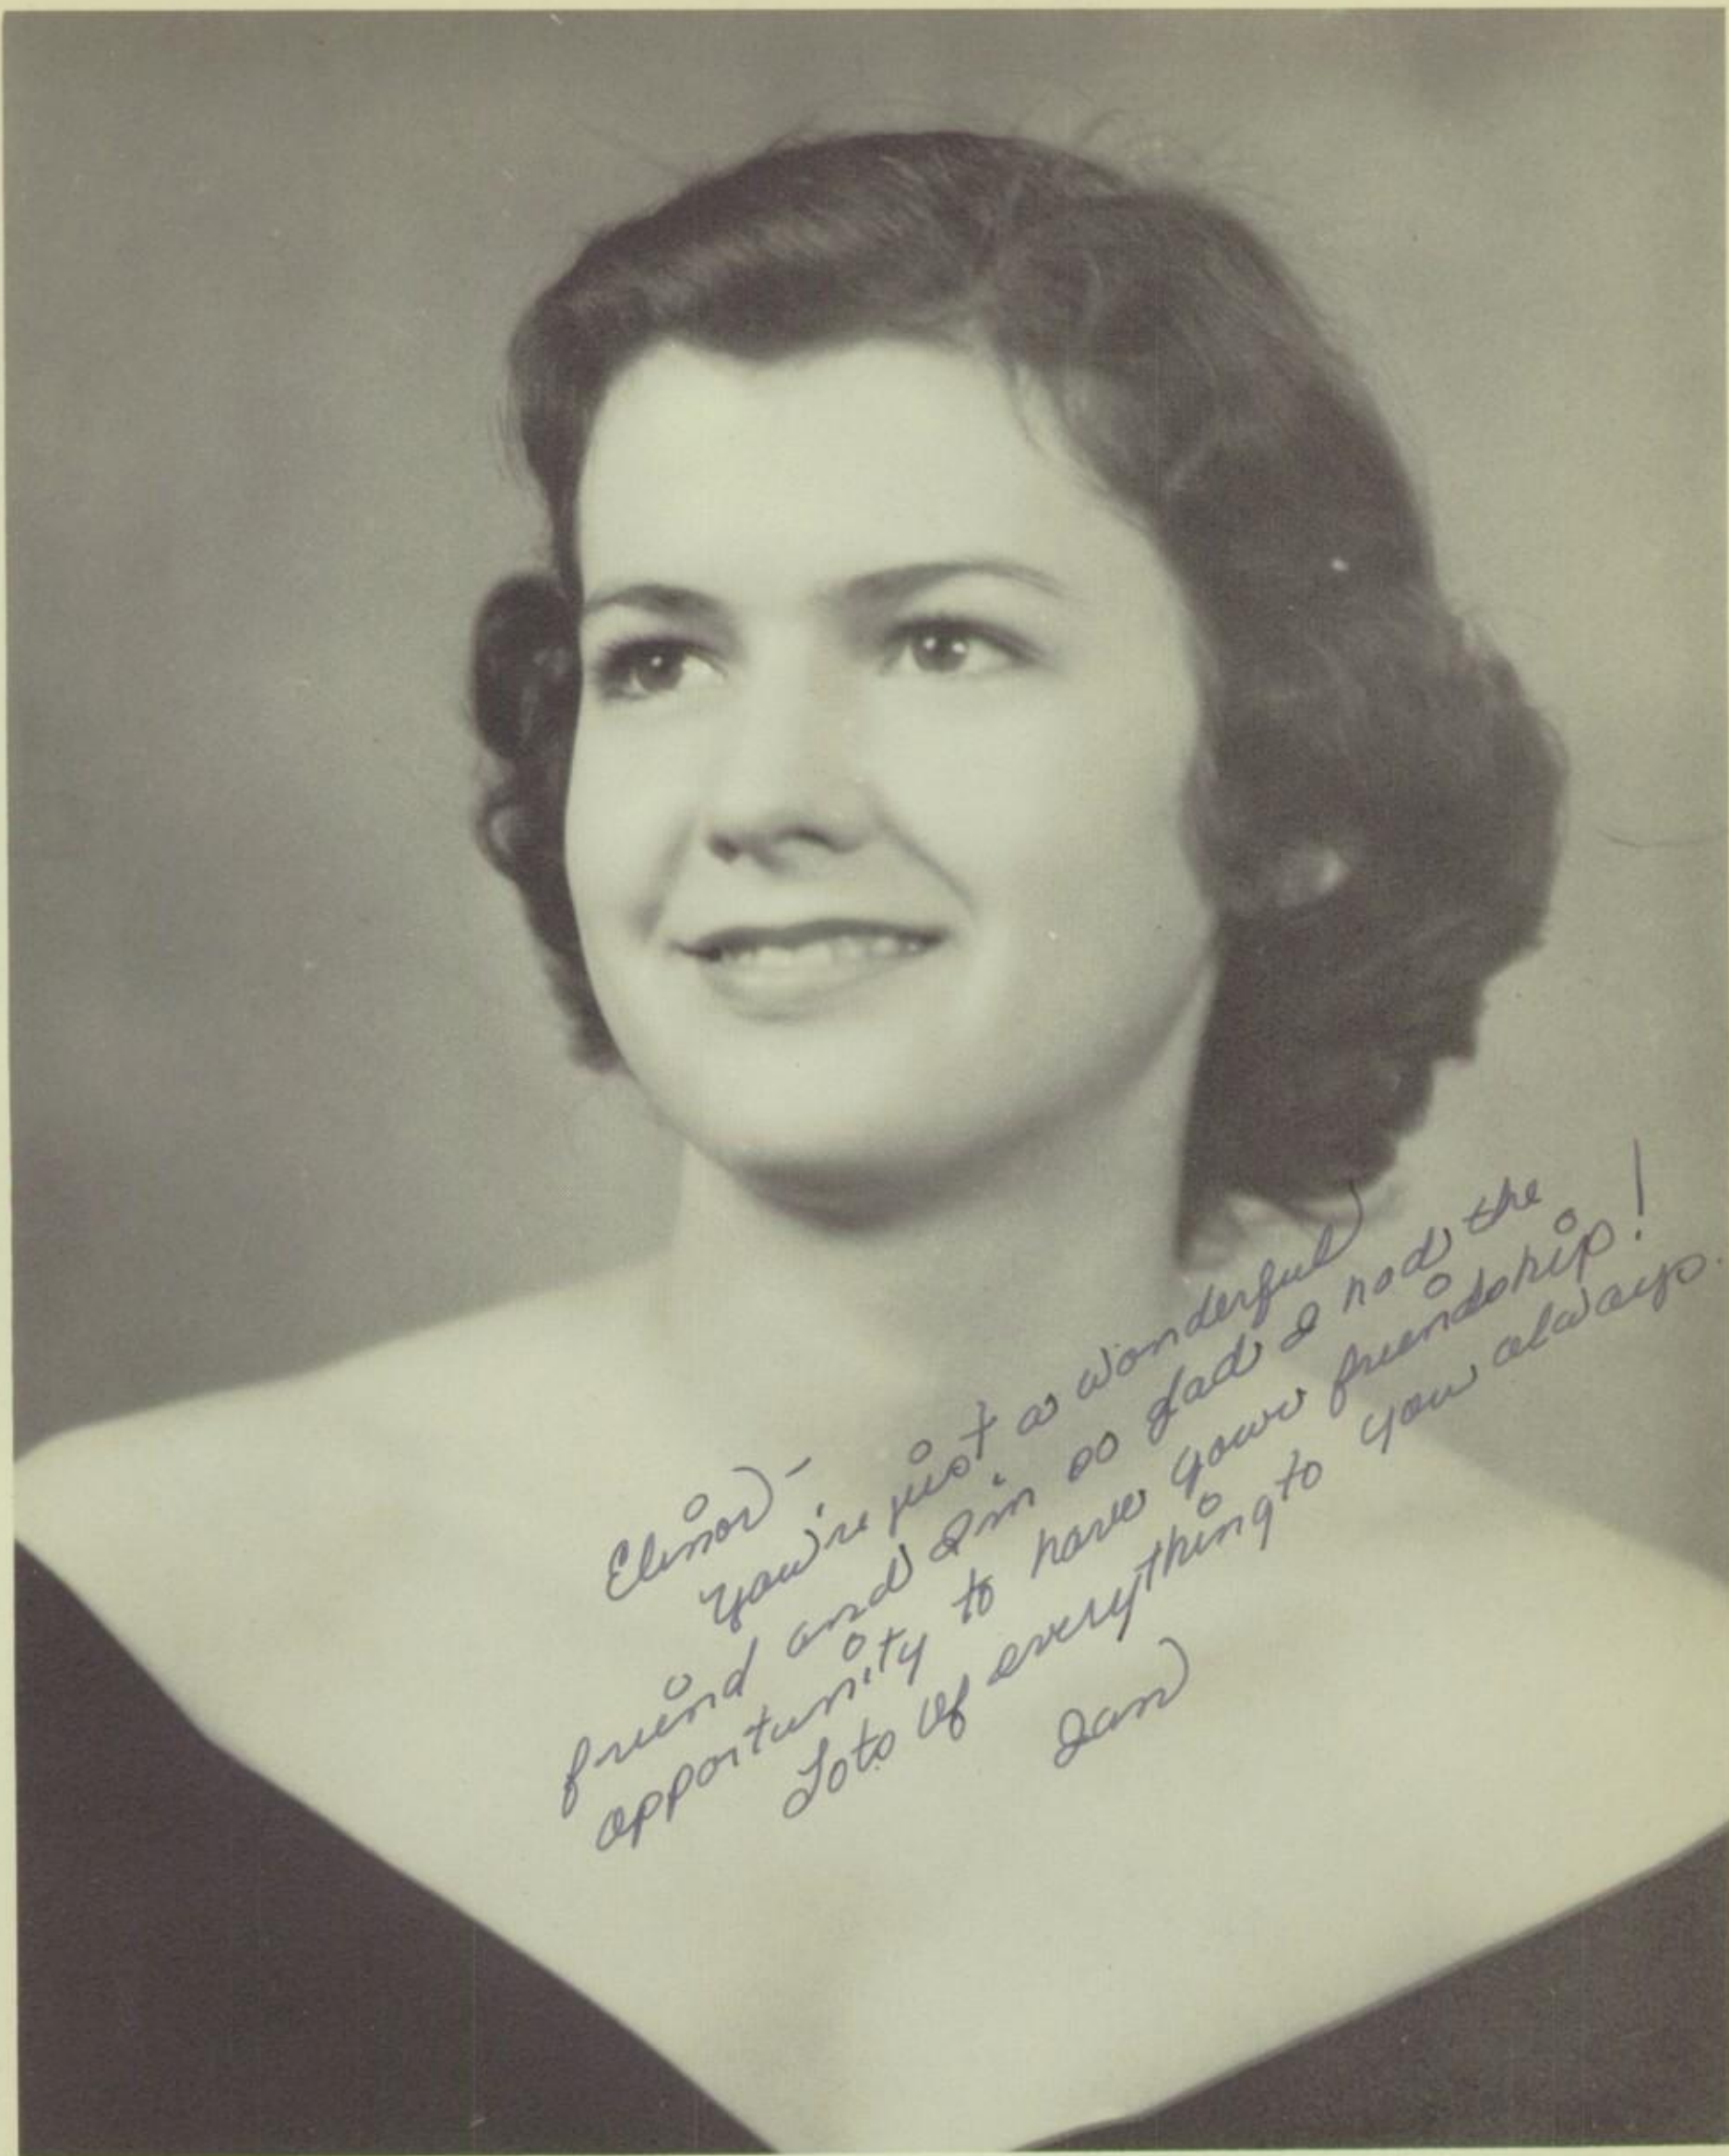 Elinor -
You're just a wonderful
friend and I'm so glad I had the
opportunity to have your friendship!
Lots of everything to you always.
Jan